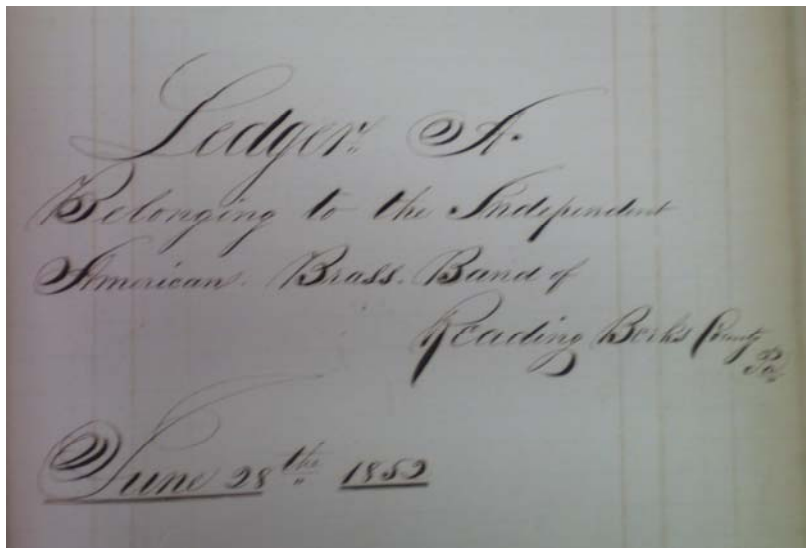 Ledger. A.
Belonging to the Independent
American. Brass. Band of
Reading Berks County
Pa
June 28th 1852